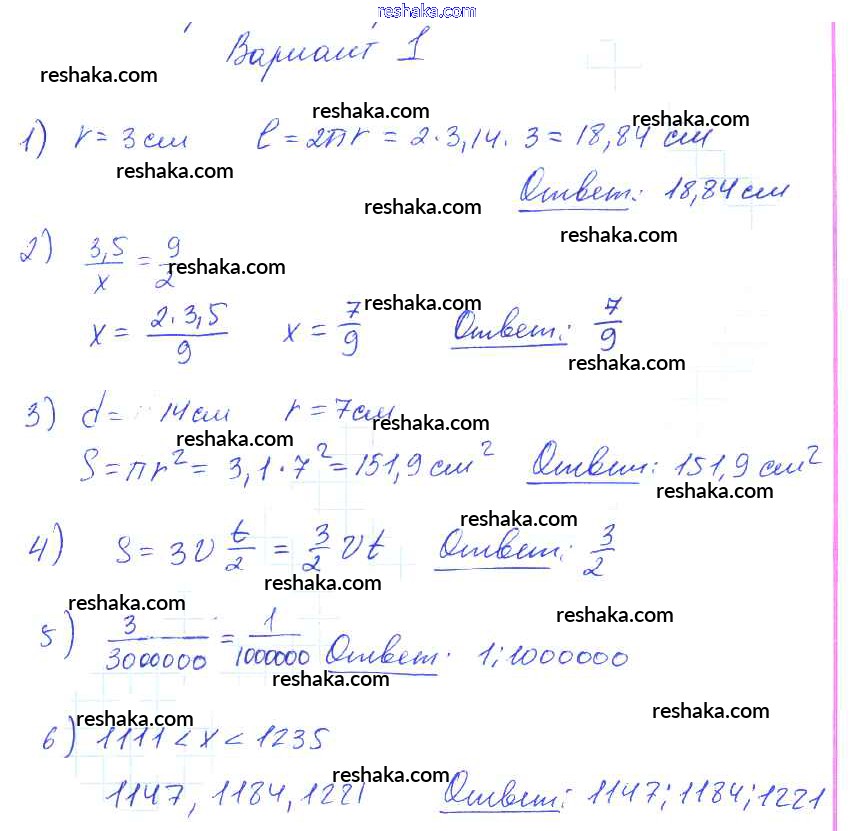 reshaka.com
Вариант 1
reshaka.com
reshaka.com reshaka.com
1) r = 3 см l = 2πr = 2 · 3,14 · 3 = 18,84 см
reshaka.com
Ответ: 18,84 см
reshaka.com
reshaka.com
2) 3,5/x = 9/2
reshaka.com
reshaka.com
x = 2·3,5/9 x = 7/9 Ответ: 7/9
reshaka.com
3) d = 14 см r = 7 см
reshaka.com
reshaka.com
S = πr² = 3,1 · 7² = 151,9 см² Ответ: 151,9 см²
reshaka.com
reshaka.com
4) S = 3v t/2 = 3/2 vt Ответ: 3/2
reshaka.com
reshaka.com
reshaka.com
5) 3/3000000 = 1/1000000 Ответ. 1:1000000
reshaka.com
reshaka.com
reshaka.com
6) 1111 < x < 1235
reshaka.com
1147, 1184, 1221 Ответ: 1147; 1184; 1221